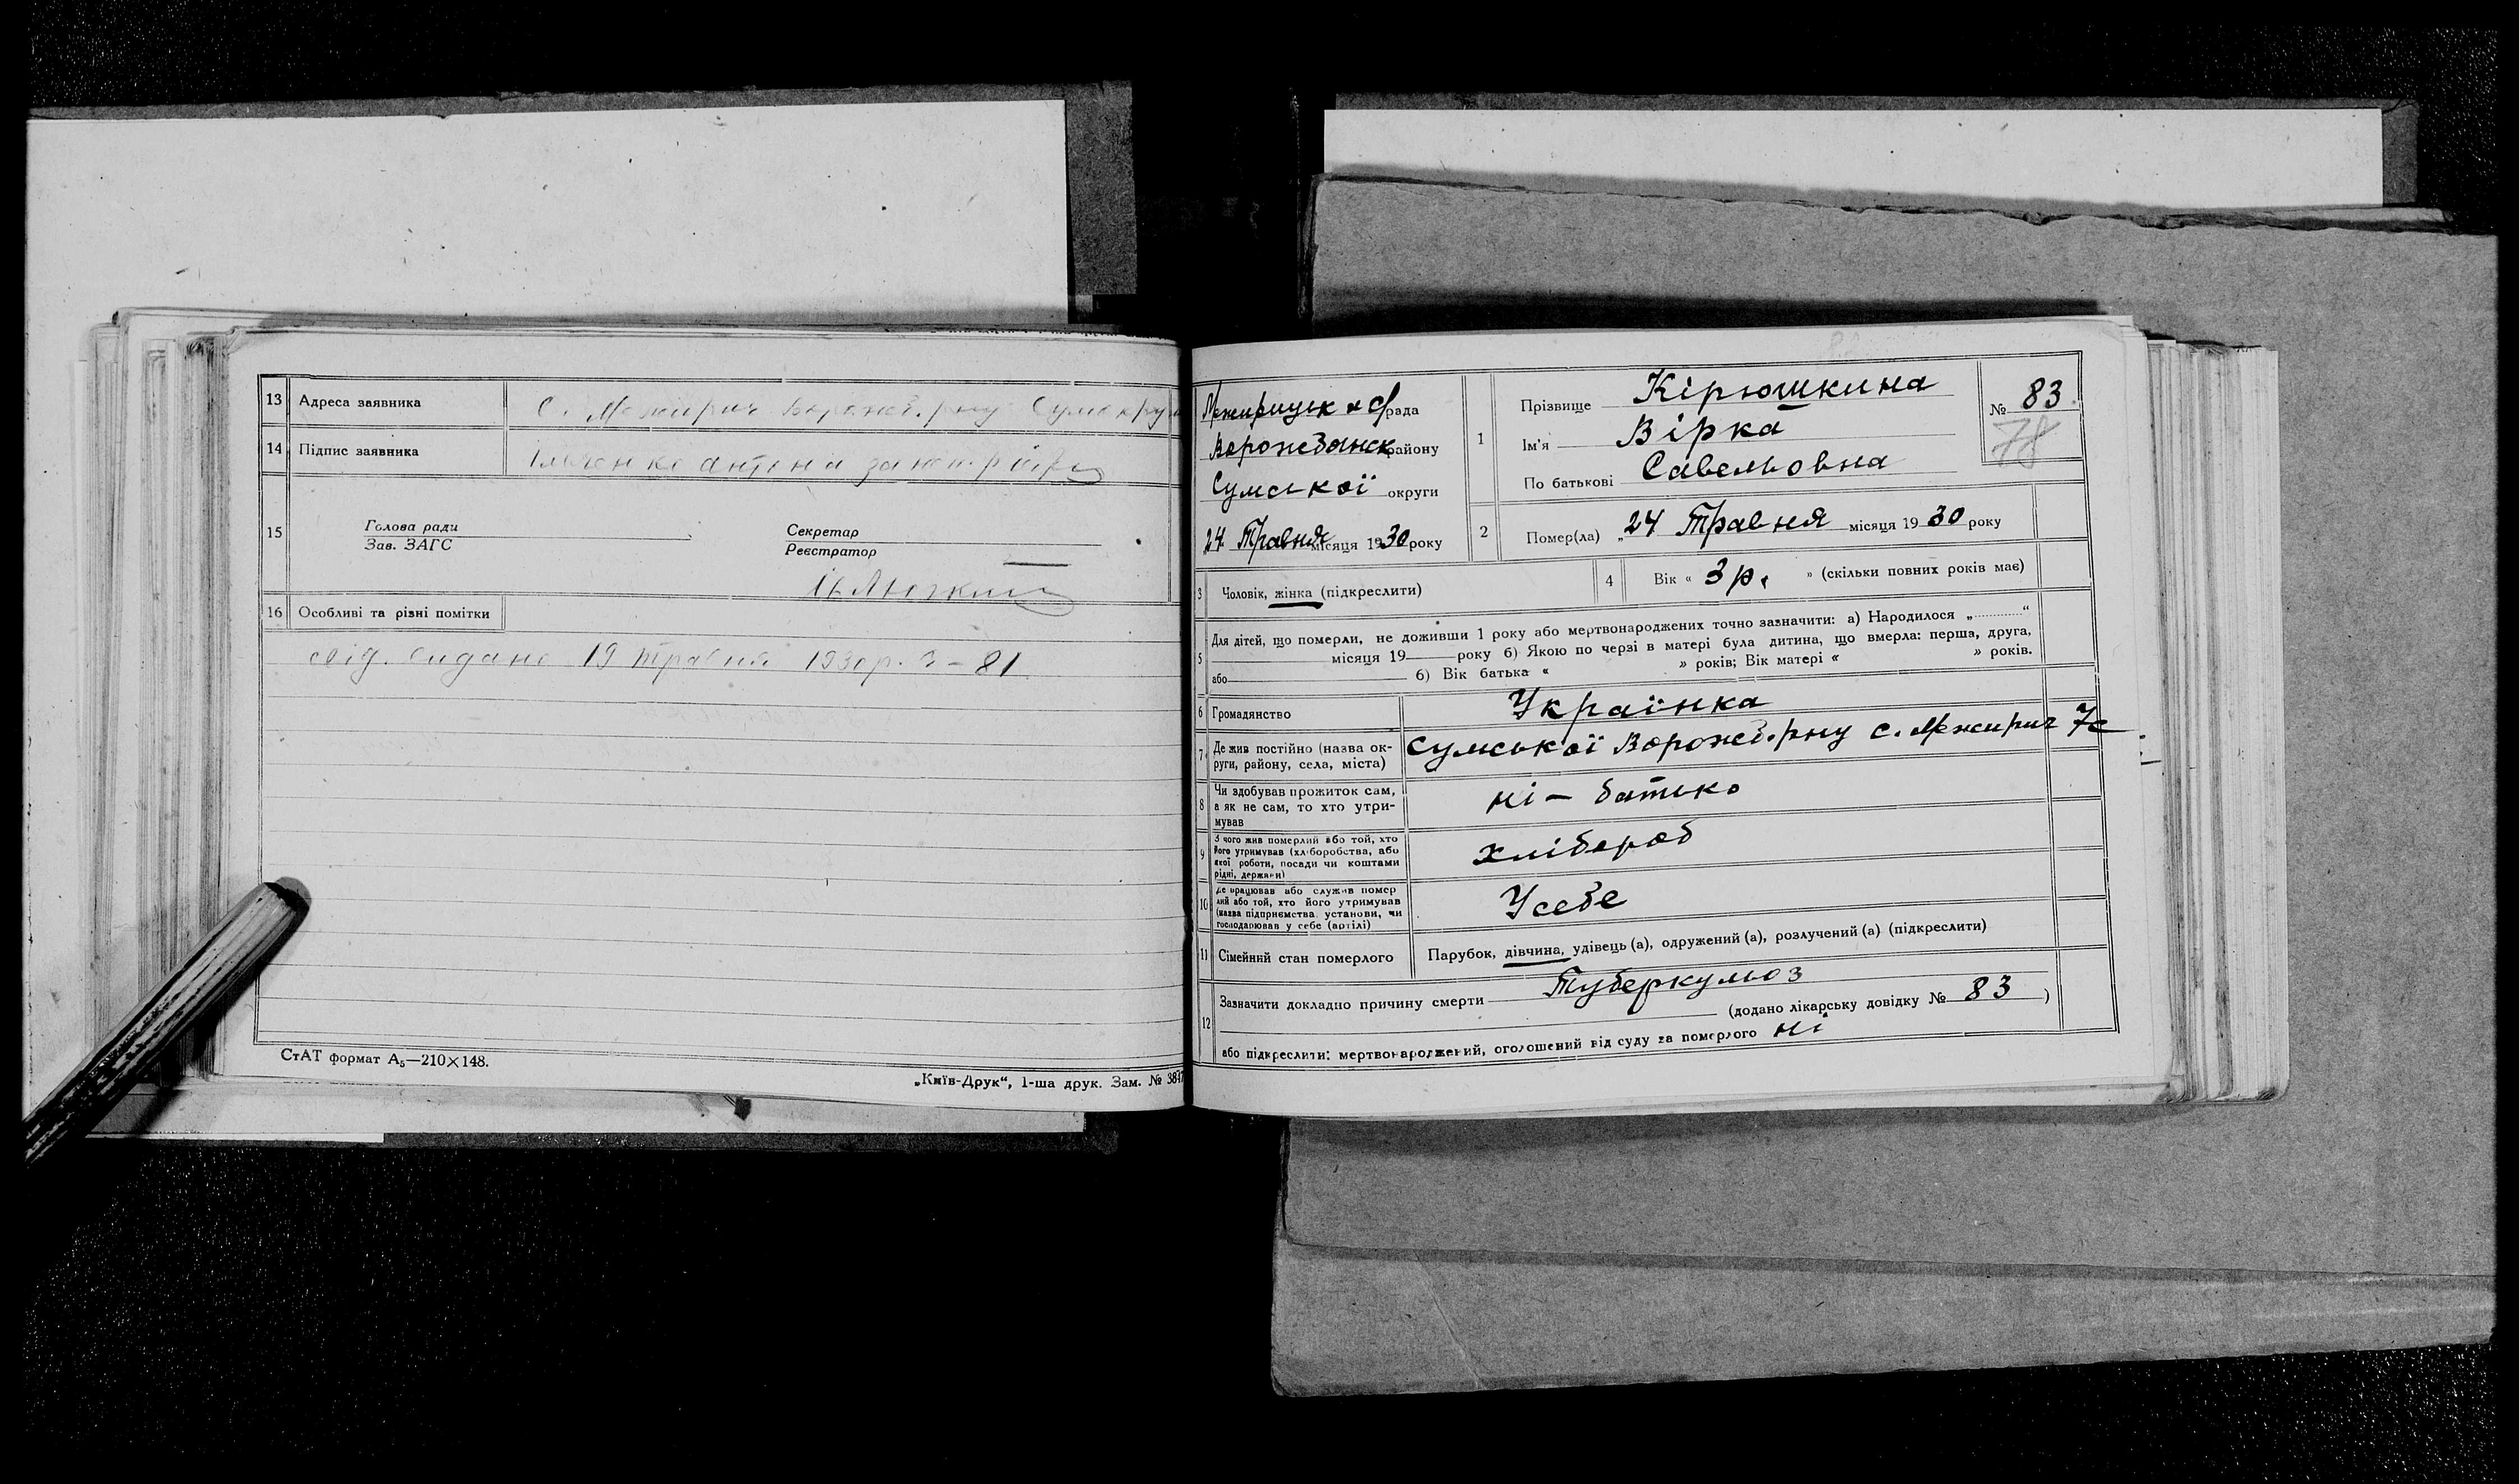 13 Адреса заявника с. Межирич Ворожб. р-ну Сумокруги
14 Підпис заявника антіна
15 Голова ради
Зав. ЗАГС
Секретар
Реєстратор
16 Особливі та різні помітки
свід. видано 19 травня 1930р. – 81
СтАТ формат А₅—210×148.
„Київ-Друк“, 1-ша друк. Зам. №
рада
Ворожбянск району
Сумської округи
24 Травня місяця 1930 року
1 Прізвище Кірюшкина
Ім'я Вірка
По батькові Савельовна
№ 83
78
2 Помер(ла) „24 Травня місяця 1930 року
3 Чоловік, жінка (підкреслити)
4 Вік « 3 р. » (скільки повних років має)
5 Для дітей, що померли, не доживши 1 року або мертвонароджених точно зазначити: а) Народилося „............“
місяця 19 року б) Якою по черзі в матері була дитина, що вмерла: перша, друга,
або б) Вік батька « » років; Вік матері « » років.
6 Громадянство Українка
7 Де жив постійно (назва ок-
руги, району, села, міста) Сумської Ворожб. рну с. Межирич 7с
8 Чи здобував прожиток сам,
а як не сам, то хто утри-
мував ні – батько
9 З чого жив померлий або той, хто
його утримував (хліборобства, або
якої роботи, посади чи коштами
рідні, держави) хлібороб
10 Де працював або служив помер
лий або той, хто його утримував
(назва підприємства, установи, чи
господарював у себе (артілі) Усебе
11 Сімейний стан померлого Парубок, дівчина, удівець (а), одружений (а), розлучений (а) (підкреслити)
12 Зазначити докладно причину смерти Туберкульоз
(додано лікарську довідку № 83 )
або підкреслити: мертвонароджений, оголошений від суду за померлого ні